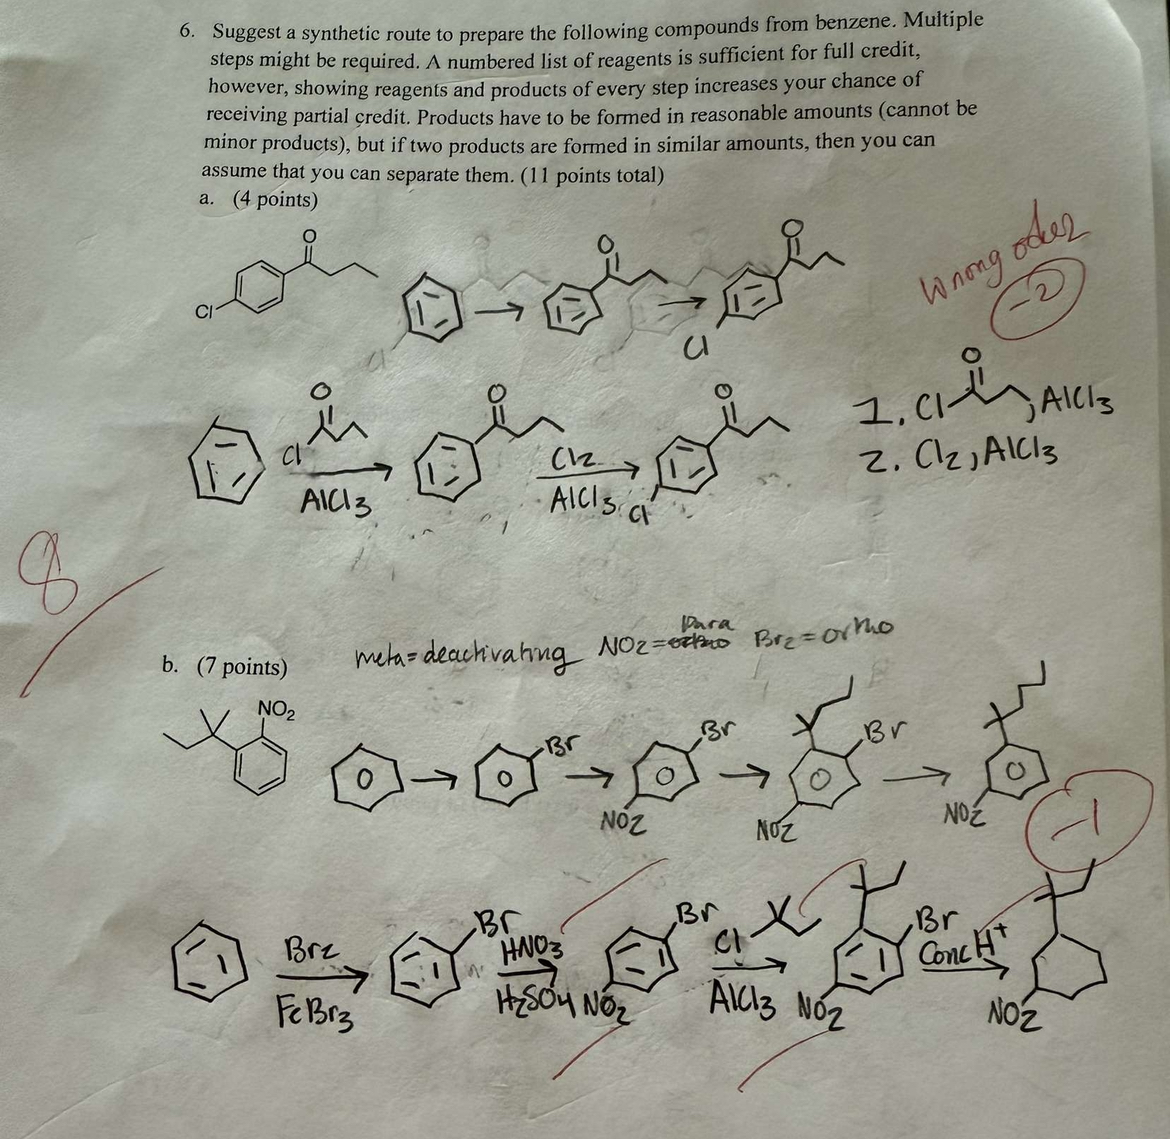 6. Suggest a synthetic route to prepare the following compounds from benzene. Multiple
steps might be required. A numbered list of reagents is sufficient for full credit,
however, showing reagents and products of every step increases your chance of
receiving partial credit. Products have to be formed in reasonable amounts (cannot be
minor products), but if two products are formed in similar amounts, then you can
assume that you can separate them. (11 points total)
a. (4 points)
Wrong order
-2
O
Cl
O
O
Cl
O
Cl
AlCl3
O
Cl2
AlCl3
O
Cl
1. Cl O , AlCl3
2. Cl2, AlCl3
8
b. (7 points)
meta = deactivating NO2 = ortho para Br2 = ortho
NO2
Br
Br
NO2
Br
NO2
NO2
-1
Br2
FeBr3
Br
HNO3
H2SO4
Br
NO2
Cl
AlCl3
Br
NO2
Conc H+
NO2